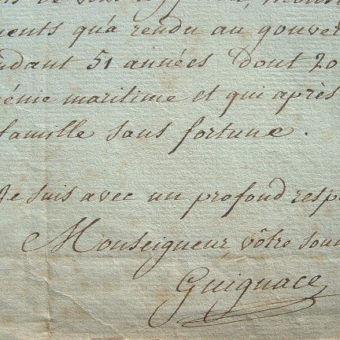 ments qu'a rendu au gouver
ndant 51 années dont 20
énie maritime et qui après
famille sans fortune.
Je suis avec un profond resp
Monseigneur, vôtre sou
Guignace